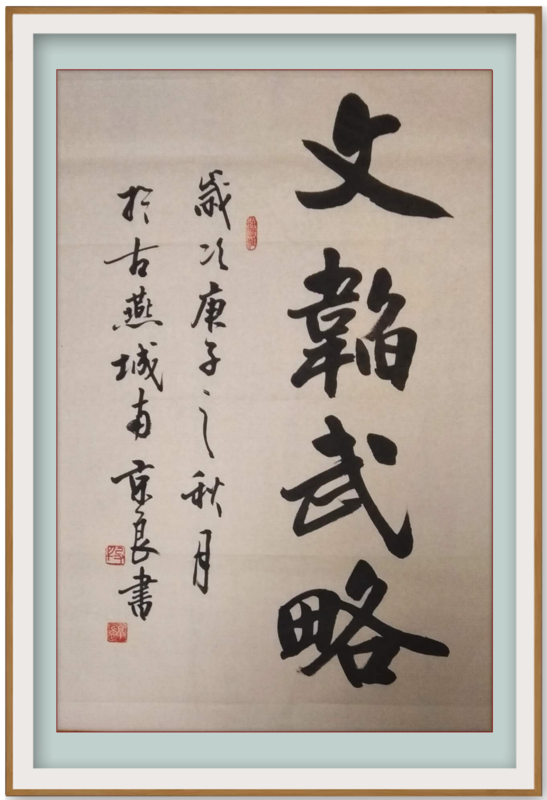 文韜武略
歲次庚子之秋月
於古燕城南京良書